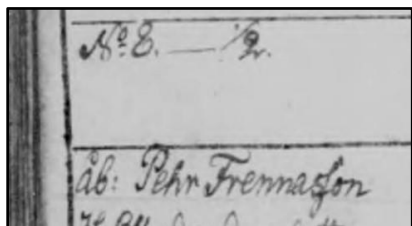 No 8. — 1/2.
åb: Pehr Frennasson